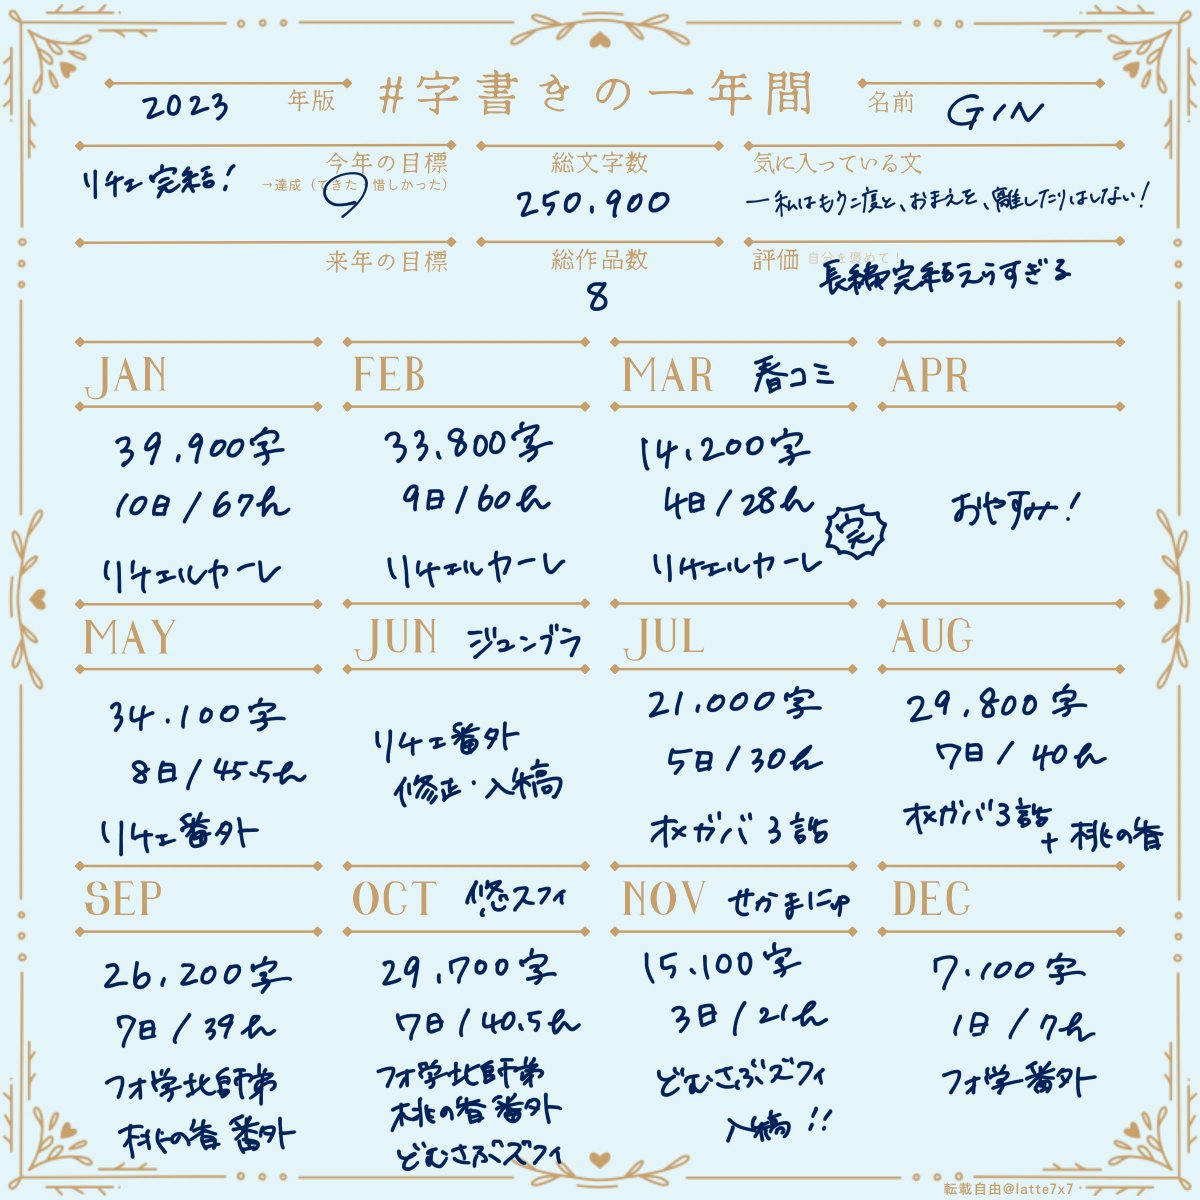 2023 年版
#字書きの一年間
名前 GIN
今年の目標
→達成（できた 惜しかった）
リチェ完結!
総文字数
250.900
気に入っている文
―私はもう二度と、おまえを、離したりはしない!
来年の目標
総作品数
8
評価 自分を褒めて!
長編完結えらすぎる
JAN
39,900字
10日/67h
リチェルカーレ
FEB
33,800字
9日/60h
リチェルカーレ
MAR 春コミ
14,200字
4日/28h
リチェルカーレ 完
APR
おやすみ!
MAY
34.100字
8日/45.5h
リチェ番外
JUN ジュンブラ
リチェ番外
修正・入稿
JUL
21,000字
5日/30h
オメガバ3話
AUG
29,800字
7日/40h
オメガバ3話
+ 桃の香
SEP
26,200字
7日/39h
フォ学北師弟
桃の香 番外
OCT 悠スフィ
29,700字
7日/40.5h
フォ学北師弟
桃の香 番外
どむさぶズフィ
NOV せかまにゅ
15,100字
3日/21h
どむさぶズフィ
入稿!!
DEC
7,100字
1日/7h
フォ学番外
転載自由@latte7x7